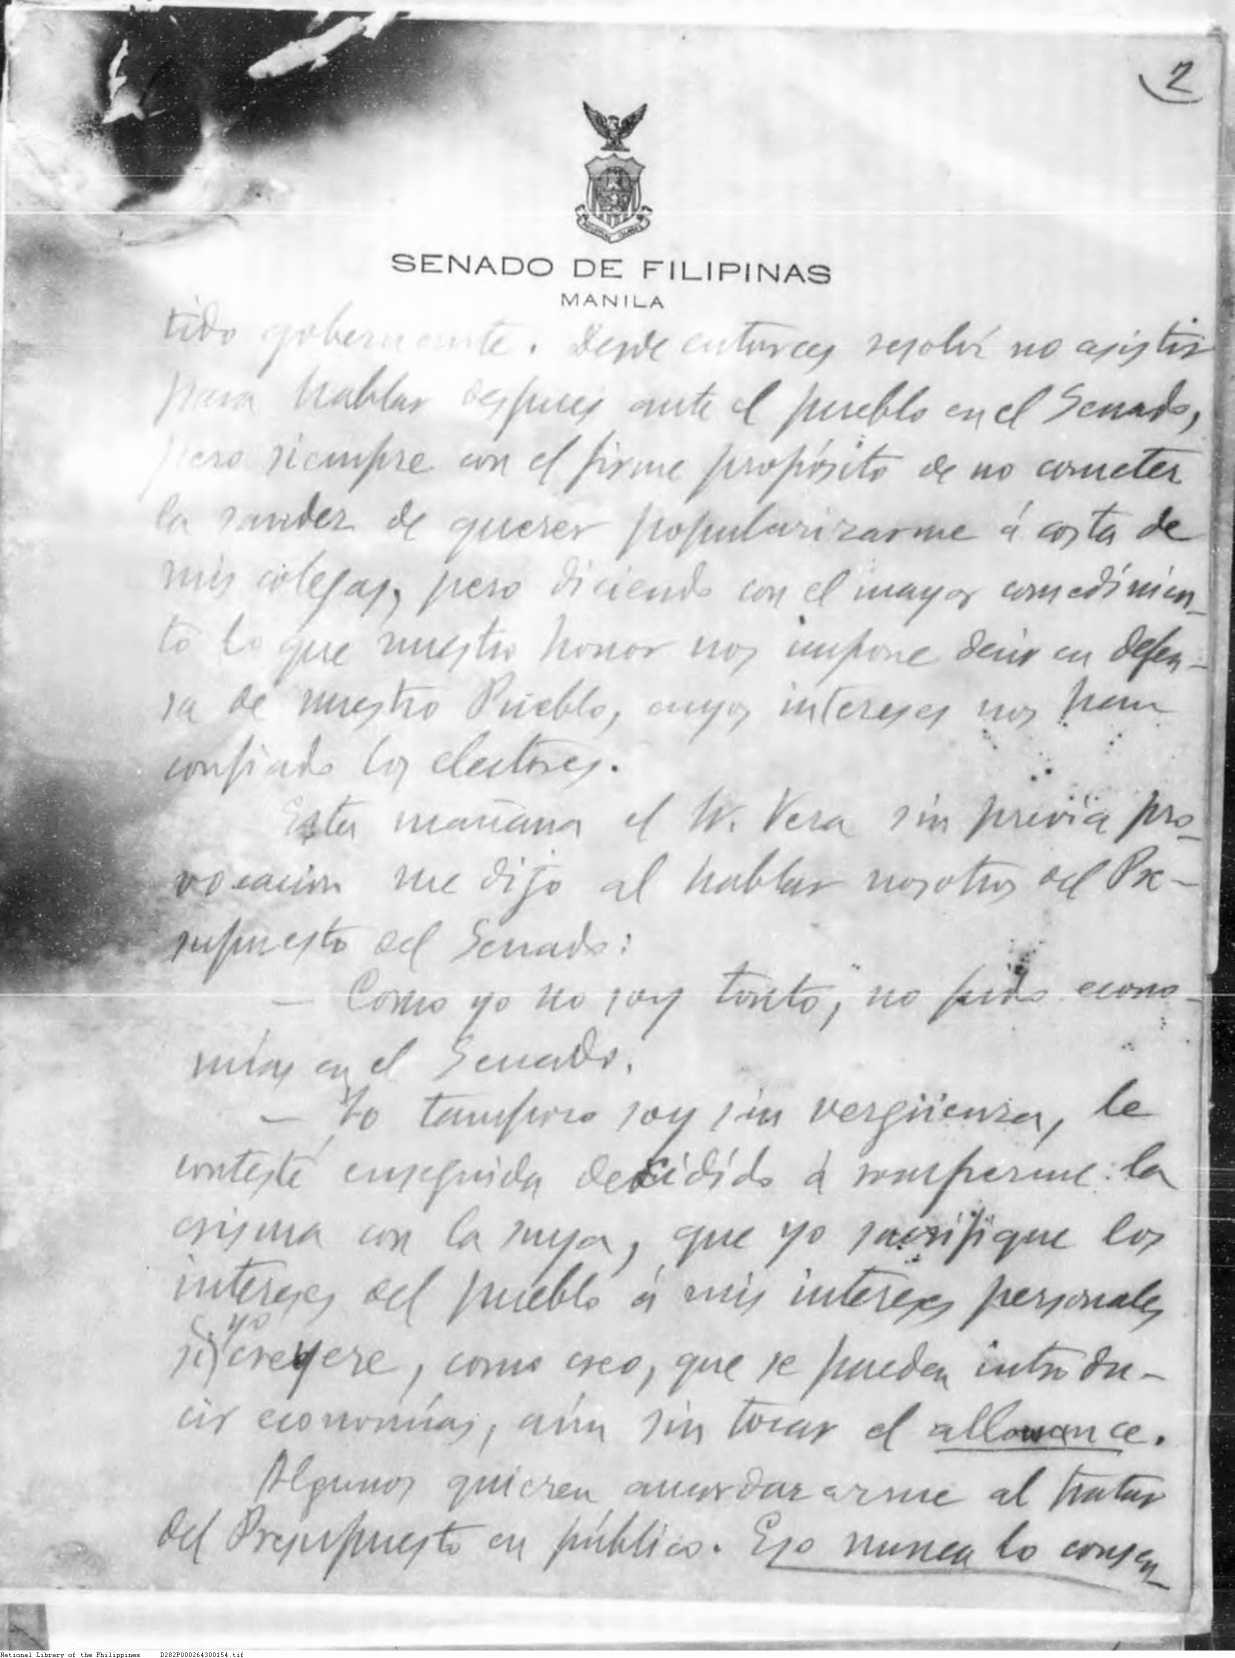 2
SENADO DE FILIPINAS
MANILA
tido gobernante. Desde entonces resolví no asistir
para hablar despues ante el pueblo en el Senado,
pero siempre con el firme propósito de no cometer
la sandez de querer popularizarme á costa de
mis colegas, pero diciendo con el mayor comedimien-
to lo que nuestro honor nos impone decir en defen-
sa de nuestro Pueblo, cuyos intereses nos han
confiado los electores.
Esta mañana el W. Vera sin previa pro-
vocacion me dijo al hablar nosotros del Pre-
supuesto del Senado:
— Como yo no soy tonto, no pido econo-
mías en el Senado.
— Yo tampoco soy sin vergüenza, le
contesté enseguida decidido á romperme la
crisma con la suya, que yo sacrifique los
intereses del pueblo á mis intereses personales
yo
si creyere, como creo, que se pueden introdu-
cir economías, aún sin tocar el allowance.
Algunos quieren amordazarme al tratar
del Presupuesto en público. Eso nunca lo consen-
National Library of the Philippines D282P000264300154.tif